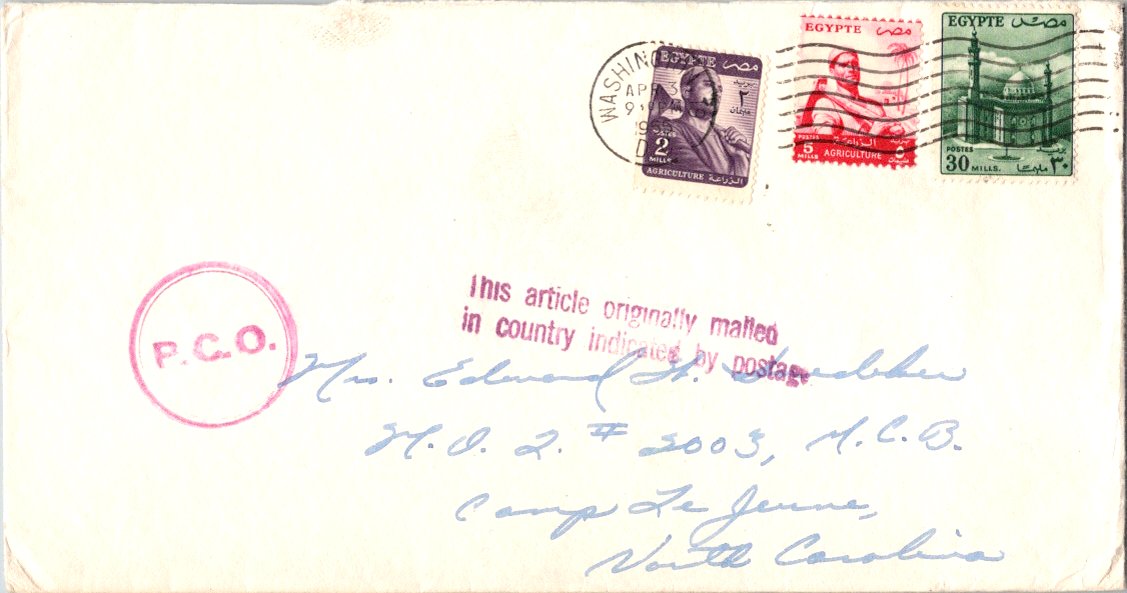 EGYPTE مصر
٢
مليمان
POSTES
2
MILLS
AGRICULTURE الزراعة
WASHINGTON
APR 3
9
D.C.
EGYPTE مصر
POSTES
5
MILLS
الزراعة
AGRICULTURE
٥
EGYPTE مصر
POSTES بريد
30 MILLS. مليمًا ٣٠
P.C.O.
This article originally mailed
in country indicated by postage
Mrs. Edward H.
M.O.Q. # 2003, M.C.B.
Camp Le Jeune,
North Carolina